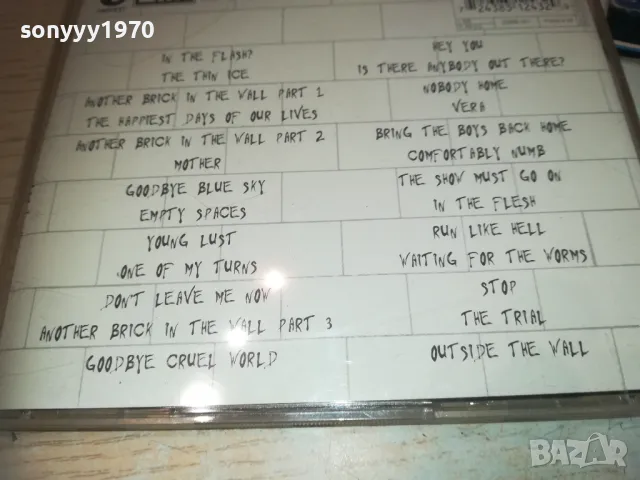 sonyyy1970
IN THE FLASH?
THE THIN ICE
ANOTHER BRICK IN THE WALL PART 1
THE HAPPIEST DAYS OF OUR LIVES
ANOTHER BRICK IN THE WALL PART 2
MOTHER
GOODBYE BLUE SKY
EMPTY SPACES
YOUNG LUST
ONE OF MY TURNS
DON'T LEAVE ME NOW
ANOTHER BRICK IN THE WALL PART 3
GOODBYE CRUEL WORLD
HEY YOU
IS THERE ANYBODY OUT THERE?
NOBODY HOME
VERA
BRING THE BOYS BACK HOME
COMFORTABLY NUMB
THE SHOW MUST GO ON
IN THE FLESH
RUN LIKE HELL
WAITING FOR THE WORMS
STOP
THE TRIAL
OUTSIDE THE WALL
BAZAR